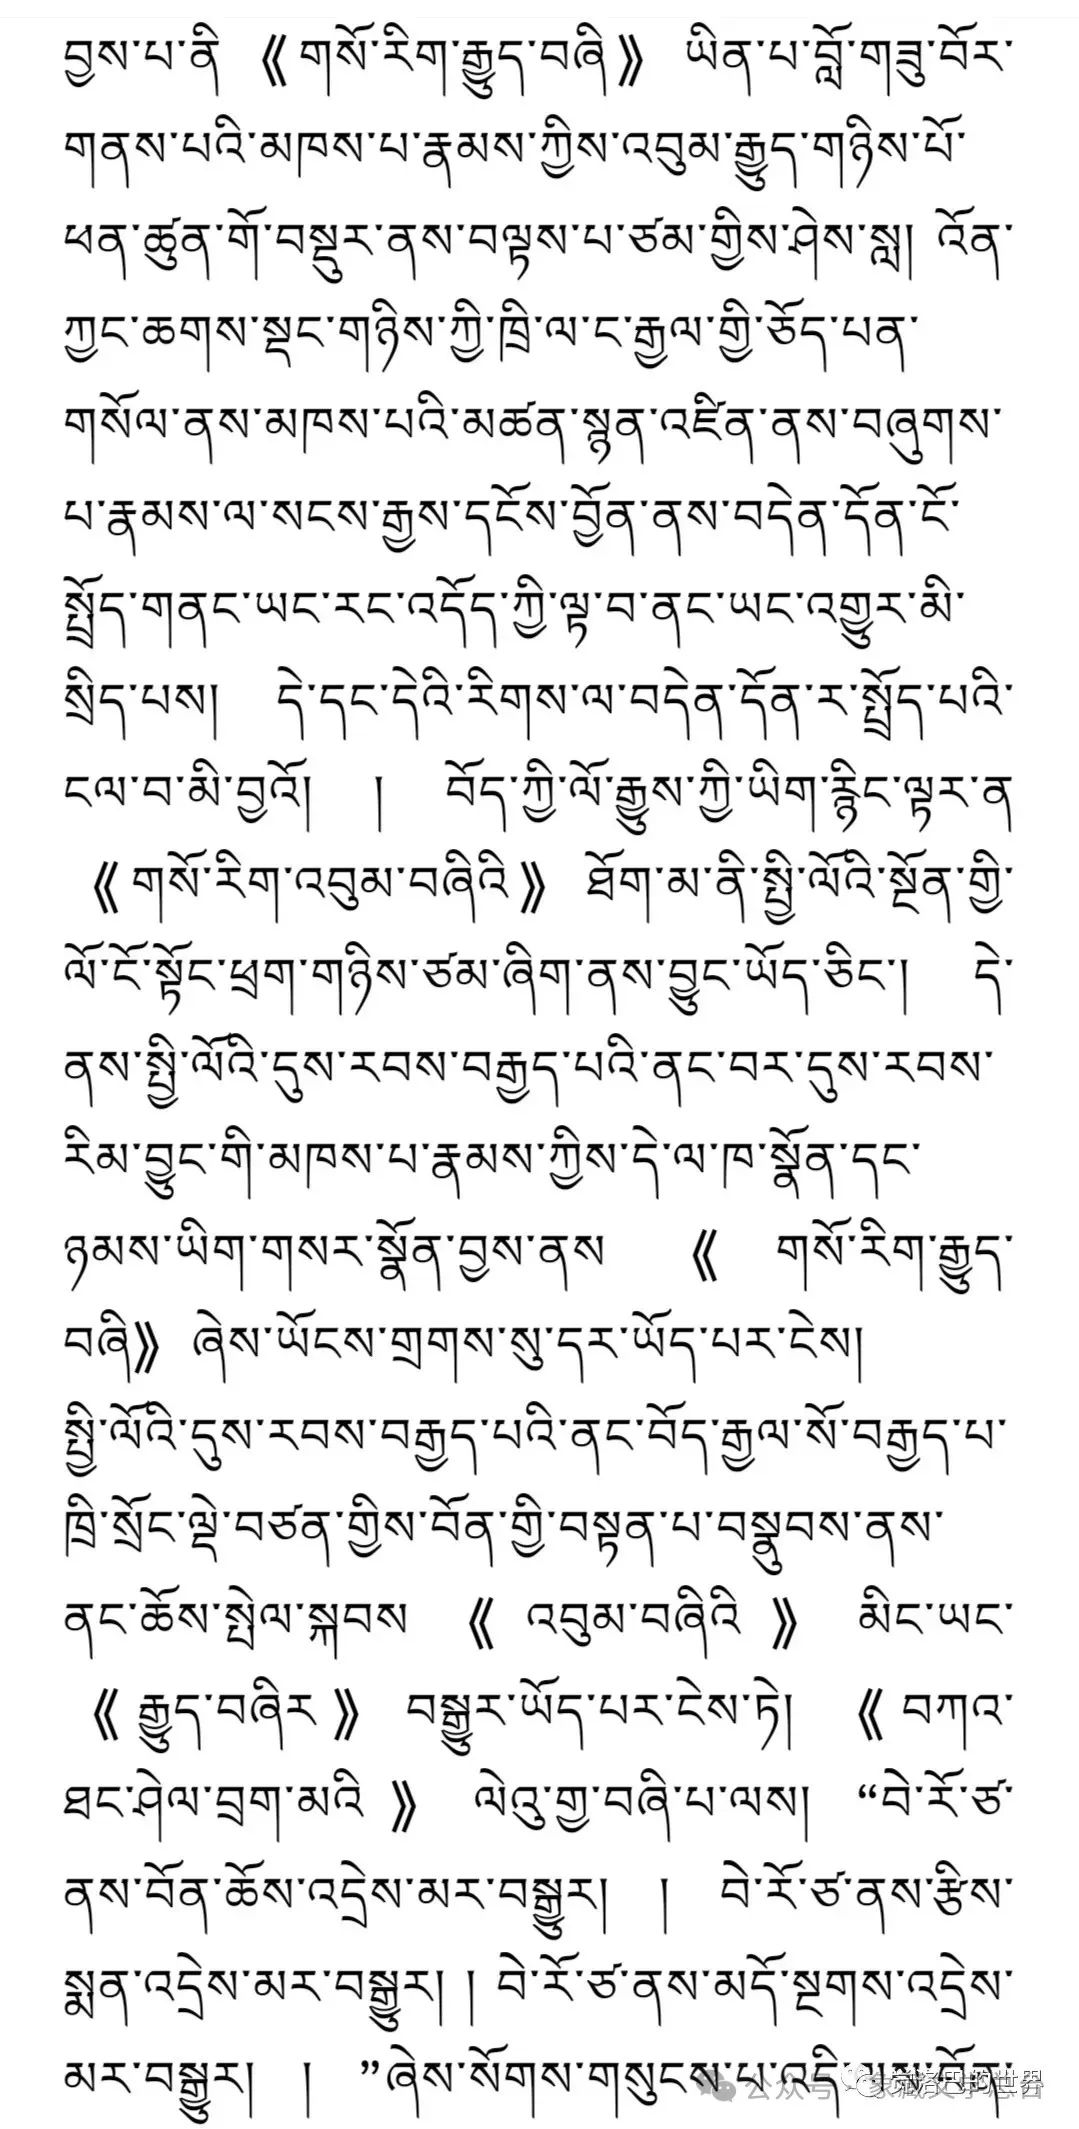 བྱས་པ་ནི 《གསོ་རིག་རྒྱུད་བཞི》 ཡིན་པ་བློ་གཟུ་བོར་
གནས་པའི་མཁས་པ་རྣམས་ཀྱིས་འབུམ་རྒྱུད་གཉིས་པོ་
ཕན་ཚུན་གོ་བསྡུར་ནས་བལྟས་པ་ཙམ་གྱིས་ཤེས་སླ། འོན་
ཀྱང་ཆགས་སྡང་གཉིས་ཀྱི་ཁྲི་ལ་ང་རྒྱལ་གྱི་ཅོད་པན་
གསོལ་ནས་མཁས་པའི་མཚན་སྙན་འཛིན་ནས་བཞུགས་
པ་རྣམས་ལ་སངས་རྒྱས་དངོས་བྱོན་ནས་བདེན་དོན་ངོ་
སྤྲོད་གནང་ཡང་རང་འདོད་ཀྱི་ལྟ་བ་ནང་ཡང་འགྱུར་མི་
སྲིད་པས། དེ་དང་དེའི་རིགས་ལ་བདེན་དོན་ར་སྤྲོད་པའི་
ངལ་བ་མི་བྱའོ། ། བོད་ཀྱི་ལོ་རྒྱུས་ཀྱི་ཡིག་རྙིང་ལྟར་ན
《གསོ་རིག་འབུམ་བཞིའི》 ཐོག་མ་ནི་སྤྱི་ལོའི་སྔོན་གྱི་
ལོ་ངོ་སྟོང་ཕྲག་གཉིས་ཙམ་ཞིག་ནས་བྱུང་ཡོད་ཅིང་། དེ་
ནས་སྤྱི་ལོའི་དུས་རབས་བརྒྱད་པའི་ནང་བར་དུས་རབས་
རིམ་བྱུང་གི་མཁས་པ་རྣམས་ཀྱིས་དེ་ལ་ཁ་སྣོན་དང་
ཉམས་ཡིག་གསར་སྣོན་བྱས་ནས 《 གསོ་རིག་རྒྱུད་
བཞི》 ཞེས་ཡོངས་གྲགས་སུ་དར་ཡོད་པར་ངེས།
སྤྱི་ལོའི་དུས་རབས་བརྒྱད་པའི་ནང་བོད་རྒྱལ་སོ་བརྒྱད་པ་
ཁྲི་སྲོང་ལྡེ་བཙན་གྱིས་བོན་གྱི་བསྟན་པ་བསྣུབས་ནས་
ནང་ཆོས་སྤེལ་སྐབས 《 འབུམ་བཞིའི 》 མིང་ཡང་
《 རྒྱུད་བཞིར 》 བསྒྱུར་ཡོད་པར་ངེས་ཏེ། 《 བཀའ་
ཐང་ཤེལ་བྲག་མའི 》 ལེའུ་གྱ་བཞི་པ་ལས། “བེ་རོ་ཙ་
ནས་བོན་ཆོས་འདྲེས་མར་བསྒྱུར། ། བེ་རོ་ཙ་ནས་རྩིས་
སྨན་འདྲེས་མར་བསྒྱུར། ། བེ་རོ་ཙ་ནས་མདོ་སྔགས་འདྲེས་
མར་བསྒྱུར། ། ”ཞེས་སོགས་གསུངས་པ་འདི་ལས་བོན་
公众号
的世界